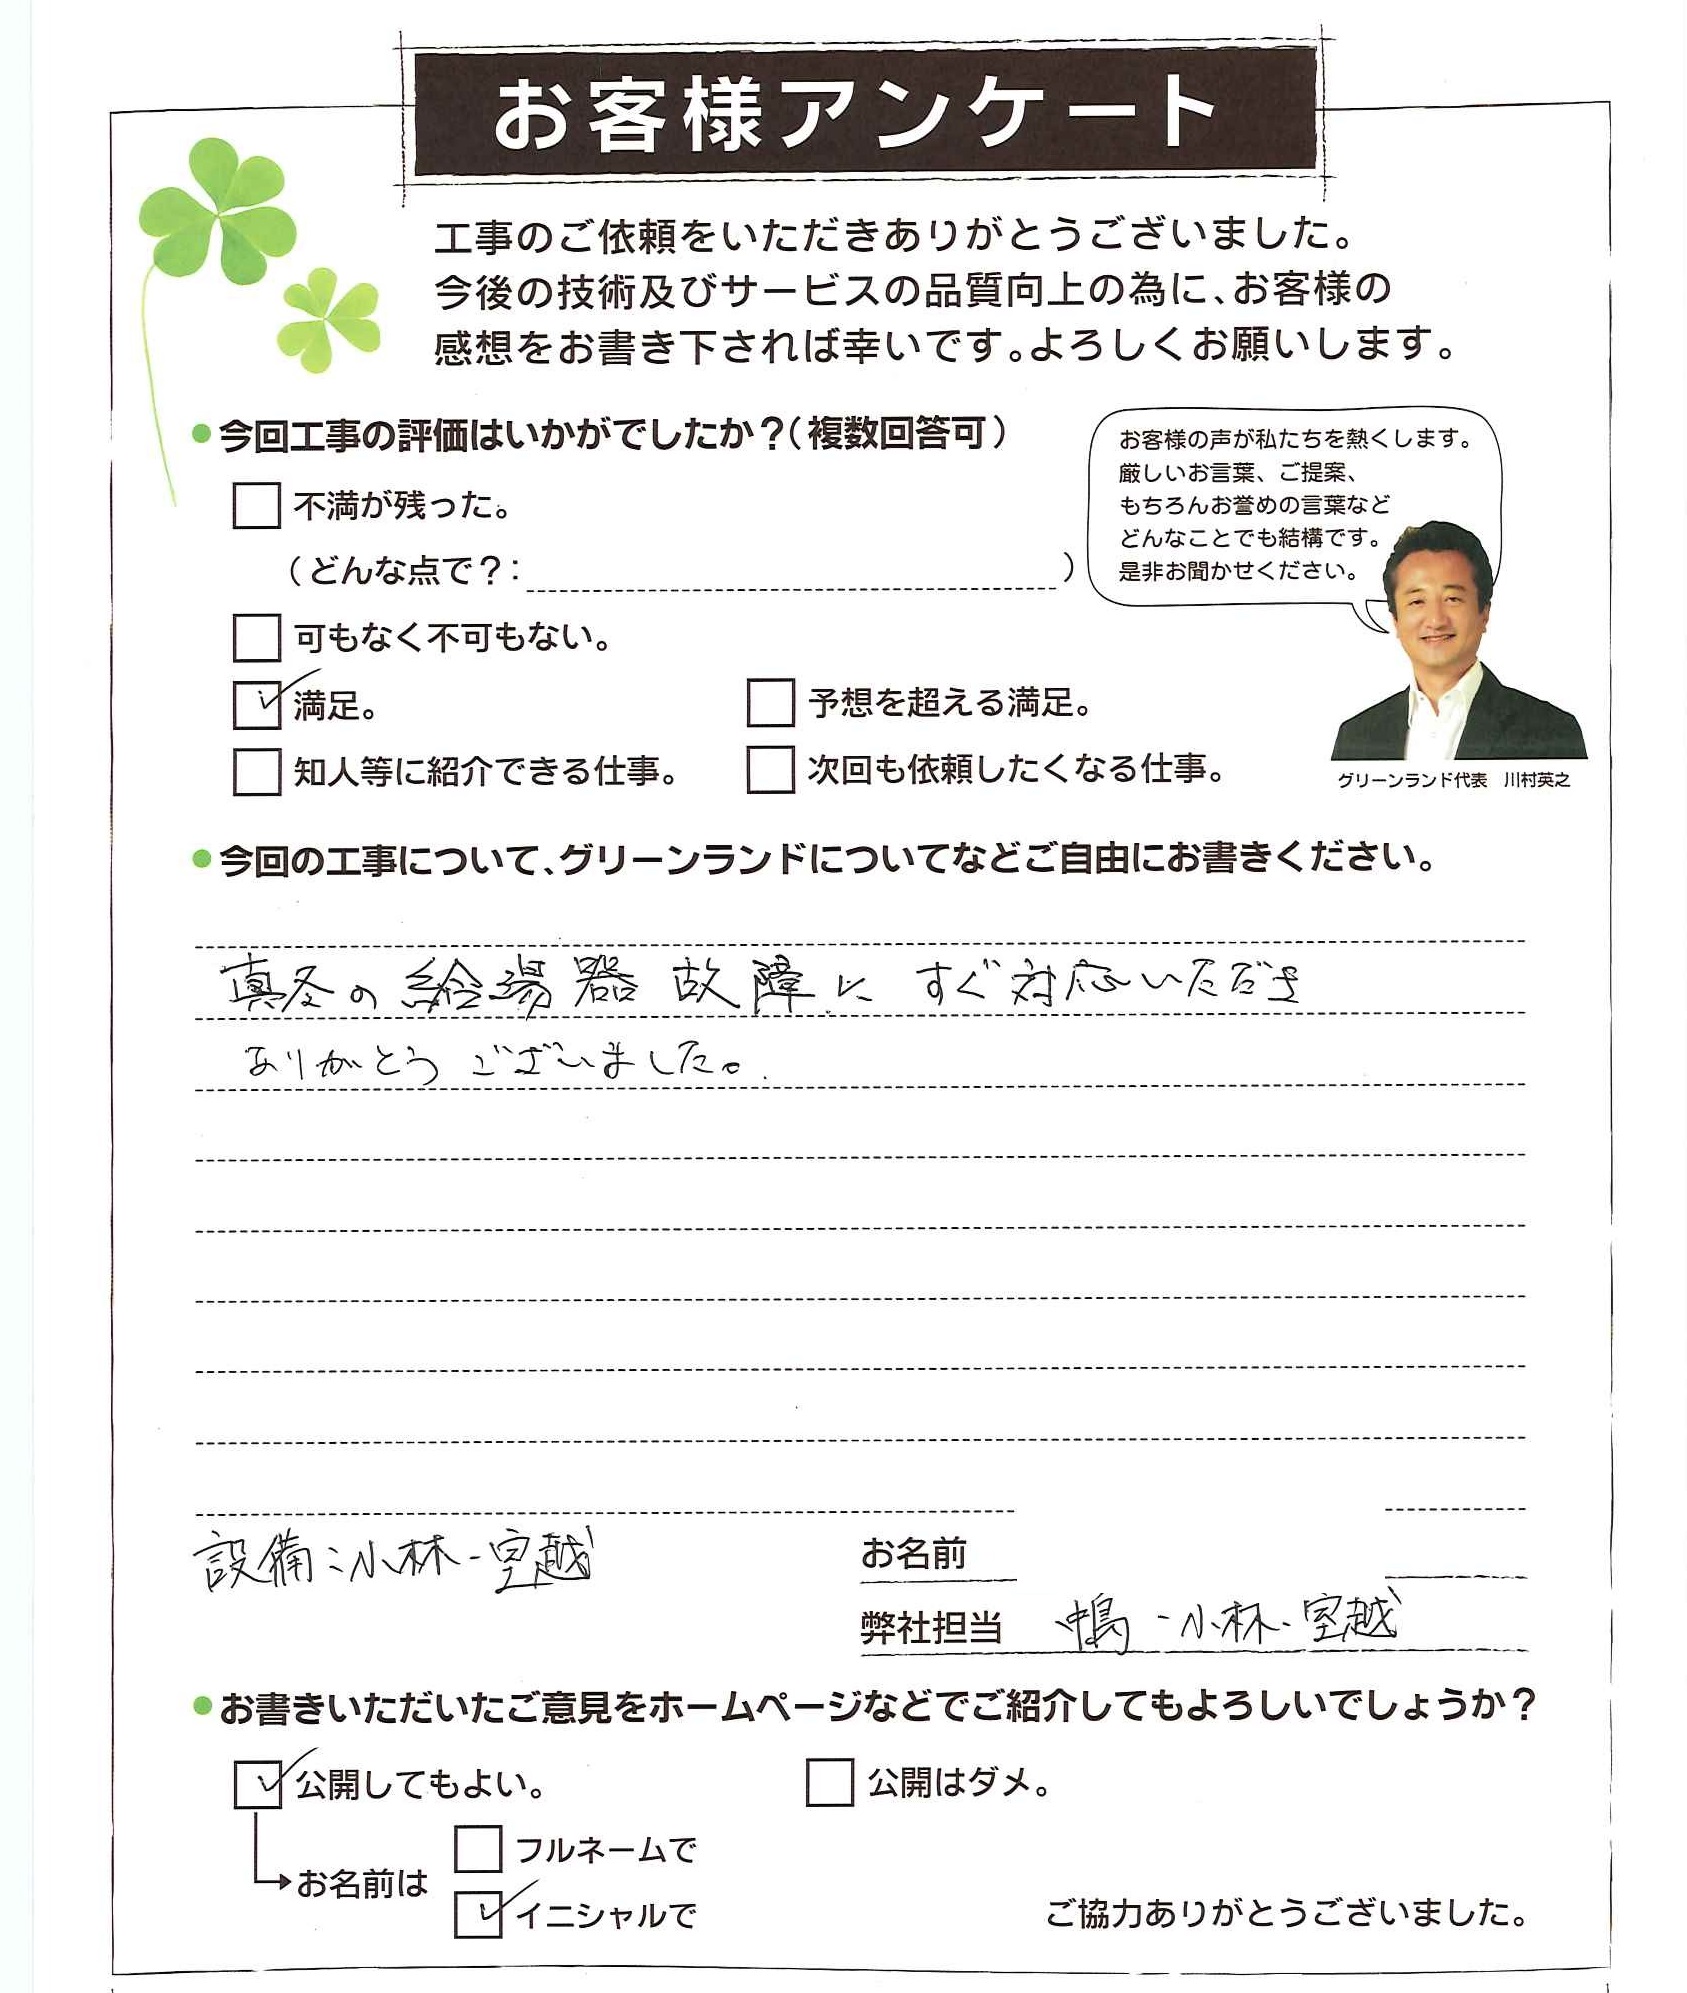 お客様アンケート
工事のご依頼をいただきありがとうございました。
今後の技術及びサービスの品質向上の為に、お客様の
感想をお書き下されば幸いです。よろしくお願いします。
●今回工事の評価はいかがでしたか？（複数回答可）
不満が残った。
（どんな点で？：　）
可もなく不可もない。
満足。
予想を超える満足。
知人等に紹介できる仕事。
次回も依頼したくなる仕事。
お客様の声が私たちを熱くします。
厳しいお言葉、ご提案、
もちろんお誉めの言葉など
どんなことでも結構です。
是非お聞かせください。
グリーンランド代表　川村英之
●今回の工事について、グリーンランドについてなどご自由にお書きください。
真冬の給湯器故障に すぐ対応いただき
ありがとうございました。
設備：小林・室越
お名前
弊社担当 ・小林・室越
●お書きいただいたご意見をホームページなどでご紹介してもよろしいでしょうか？
公開してもよい。
公開はダメ。
お名前は
フルネームで
イニシャルで
ご協力ありがとうございました。